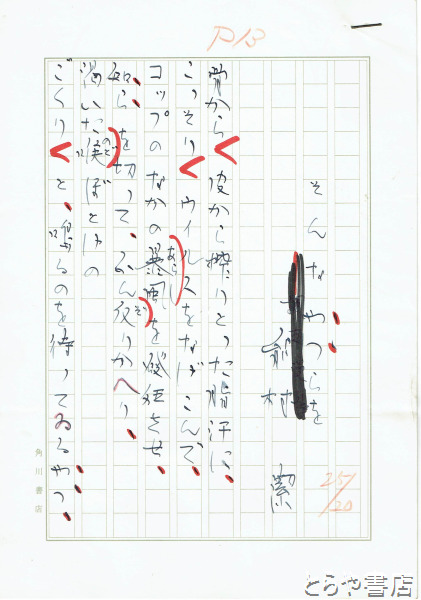 P13
そんなやつらを
村 潔
骨から 皮から 搾りとった脂汗に、
こっそり ウイルスをなげこんで、
コップのなかの暴風を発狂させ、
あらし
知ら を切って、ふん反りかへり、
ぞ
渇いた喉ぼとけの
のど
ごくり と、鳴るのを待ってゐるやつ、
25/20
角川書店
とらや書店